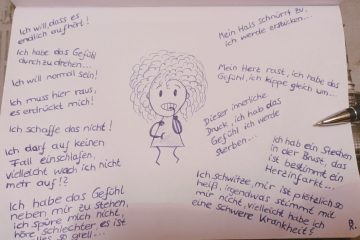 Ich will, dass es
endlich aufhört!
Ich habe das Gefühl
durchzudrehen...
Ich will normal sein!
Ich muss hier raus,
es erdrückt mich!
Ich schaffe das nicht!
Ich darf auf keinen
Fall einschlafen,
vielleicht wach ich nicht
mehr auf!?
Ich habe das Gefühl
neben mir zu stehen,
ich spüre mich nicht,
höre schlechter, es ist
alles so grell...
Mein Hals schnürrt zu,
ich werde ersticken...
Mein Herz rast, ich habe das
Gefühl, ich kippe gleich um...
Dieser innerliche
Druck, ich hab das
Gefühl ich werde
sterben...
ich hab ein Stechen
in der Brust, das
ist bestimmt ein
Herzinfarkt...
Ich schwitze, mir ist plötzlich so
heiß, irgendwas stimmt mit
mir nicht, vielleicht habe ich
eine schwere Krankheit?